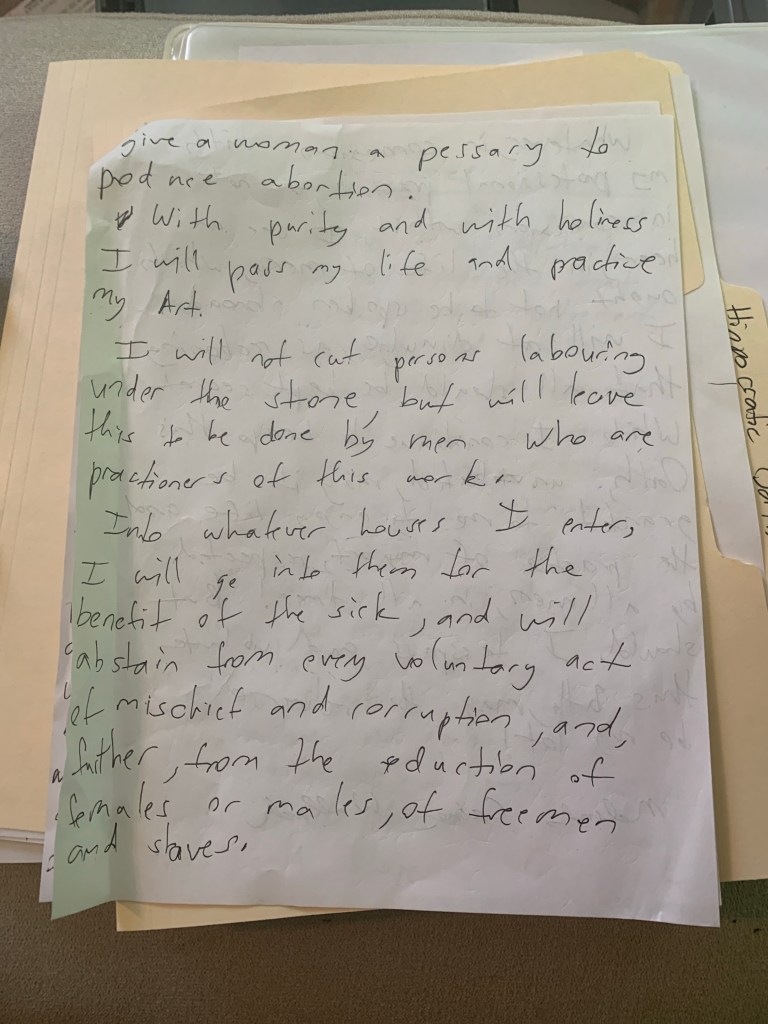 give a woman a pessary to
podnce abortion.
With purity and with holiness
I will pass my life and practice
my Art.
I will not cut persons labouring
under the stone, but will leave
this to be done by men who are
practioners of this work.
Into whatever houses I enter,
I will go into them for the
benefit of the sick, and will
abstain from every voluntary act
of mischief and corruption, and,
further, from the eduction of
females or males, of freemen
and slaves.
Hippocratic